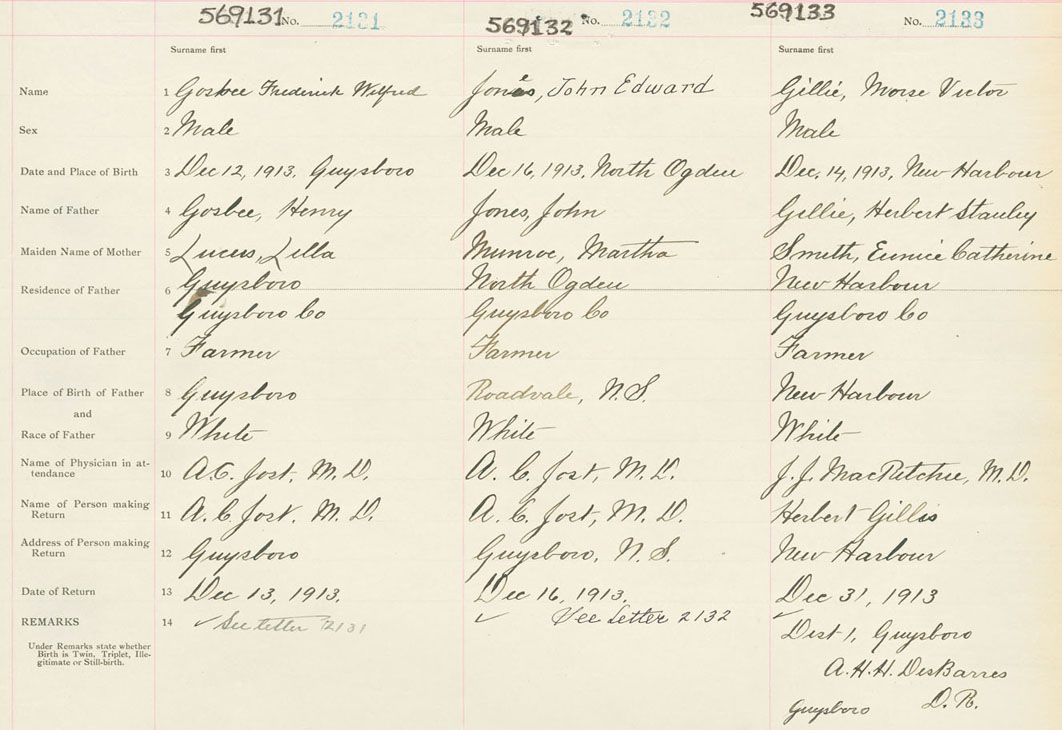 569131 No. 2131 569132 No. 2132 569133 No. 2133
Surname first Surname first Surname first
Name 1 Gosbee Frederick Wilfred Jones, John Edward Gillie, Morse Victor
Sex 2 Male Male Male
Date and Place of Birth 3 Dec 12, 1913, Guysboro Dec 16, 1913, North Ogden Dec. 14, 1913, New Harbour
Name of Father 4 Gosbee, Henry Jones, John Gillie, Herbert Stanley
Maiden Name of Mother 5 Lucus, Lilla Munroe, Martha Smith, Eunice Catherine
Residence of Father 6 Guysboro North Ogden New Harbour
Guysboro Co Guysboro Co Guysboro Co
Occupation of Father 7 Farmer Farmer Farmer
Place of Birth of Father 8 Guysboro Roadvale, N.S. New Harbour
and
Race of Father 9 White White White
Name of Physician in at-
tendance 10 A.C. Jost, M.D. A. C. Jost, M.D. J.J. MacRitchie, M.D.
Name of Person making
Return 11 A. C Jost. M.D. A. C. Jost, M.D. Herbert Gillis
Address of Person making
Return 12 Guysboro Guysboro, N.S. New Harbour
Date of Return 13 Dec 13, 1913. Dec 16, 1913. Dec 31, 1913
REMARKS 14 ✓ See letter 2131 ✓ See Letter 2132 ✓
Under Remarks state whether
Birth is Twin, Triplet, Ille-
gitimate or Still-birth.
Dist 1, Guysboro
A.H.H. DesBarres
Guysboro D.R.